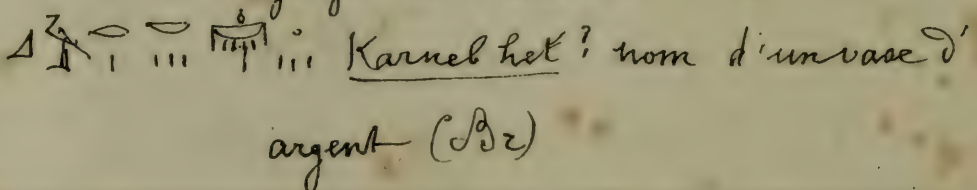 Karneb het? nom d'un vase d'
argent (Bz)